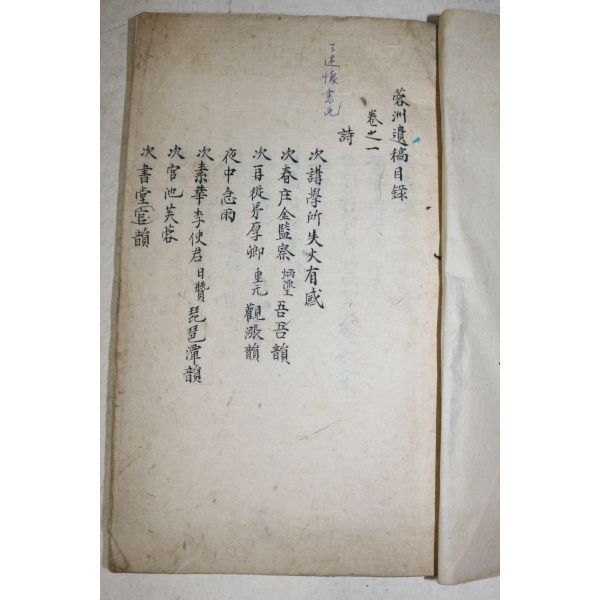 蓉洲遺稿目錄
卷之一
下述懷書此
詩
次講學所失火有感
次春庄金監察炳瀅吾吾韻
次再從弟厚卿重元觀漲韻
夜中急雨
次素華李使君日贊琵琶潭韻
次官池芙蓉
次書堂官韻